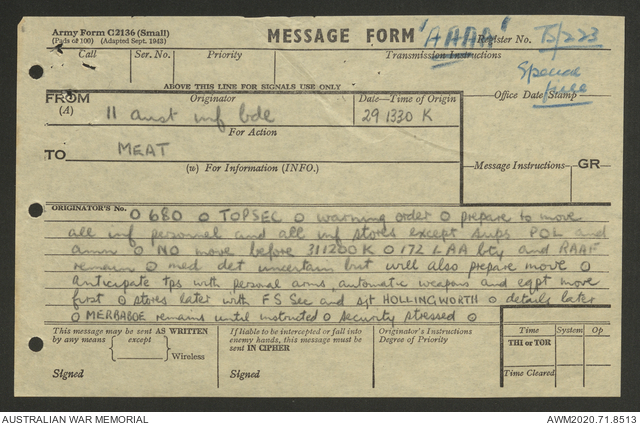 Army Form C2136 (Small)
(Pads of 100) (Adapted Sept. 1943)
MESSAGE FORM
"AAAA"
Register No. TS/223
Call Ser. No. Priority Transmission Instructions
ABOVE THIS LINE FOR SIGNALS USE ONLY
Office Date Stamp
FROM Originator Date—Time of Origin
(A) 11 aust inf bde 29 1330 K
For Action
TO MEAT
(w) For Information (INFO.)
Message Instructions GR
ORIGINATOR'S No. O 680 O TOPSEC O warning order O prepare to move
all inf personnel and all inf stores except sups POL and
amn O NO move before 311200K O 172 LAA bty and RAAF
remain O med det uncertain but will also prepare move O
Anticipate tps with personal arms, automatic weapons and eqpt move
first O stores later with FS Sec and sjt HOLLINGWORTH O details later
O MERBABOE remains until instructed O security stressed O
This message may be sent AS WRITTEN by any means except Wireless
Signed
If liable to be intercepted or fall into enemy hands, this message must be sent IN CIPHER
Signed
Originator's Instructions
Degree of Priority
Time System Op
THI or TOR
Time Cleared
AUSTRALIAN WAR MEMORIAL AWM2020.71.8513